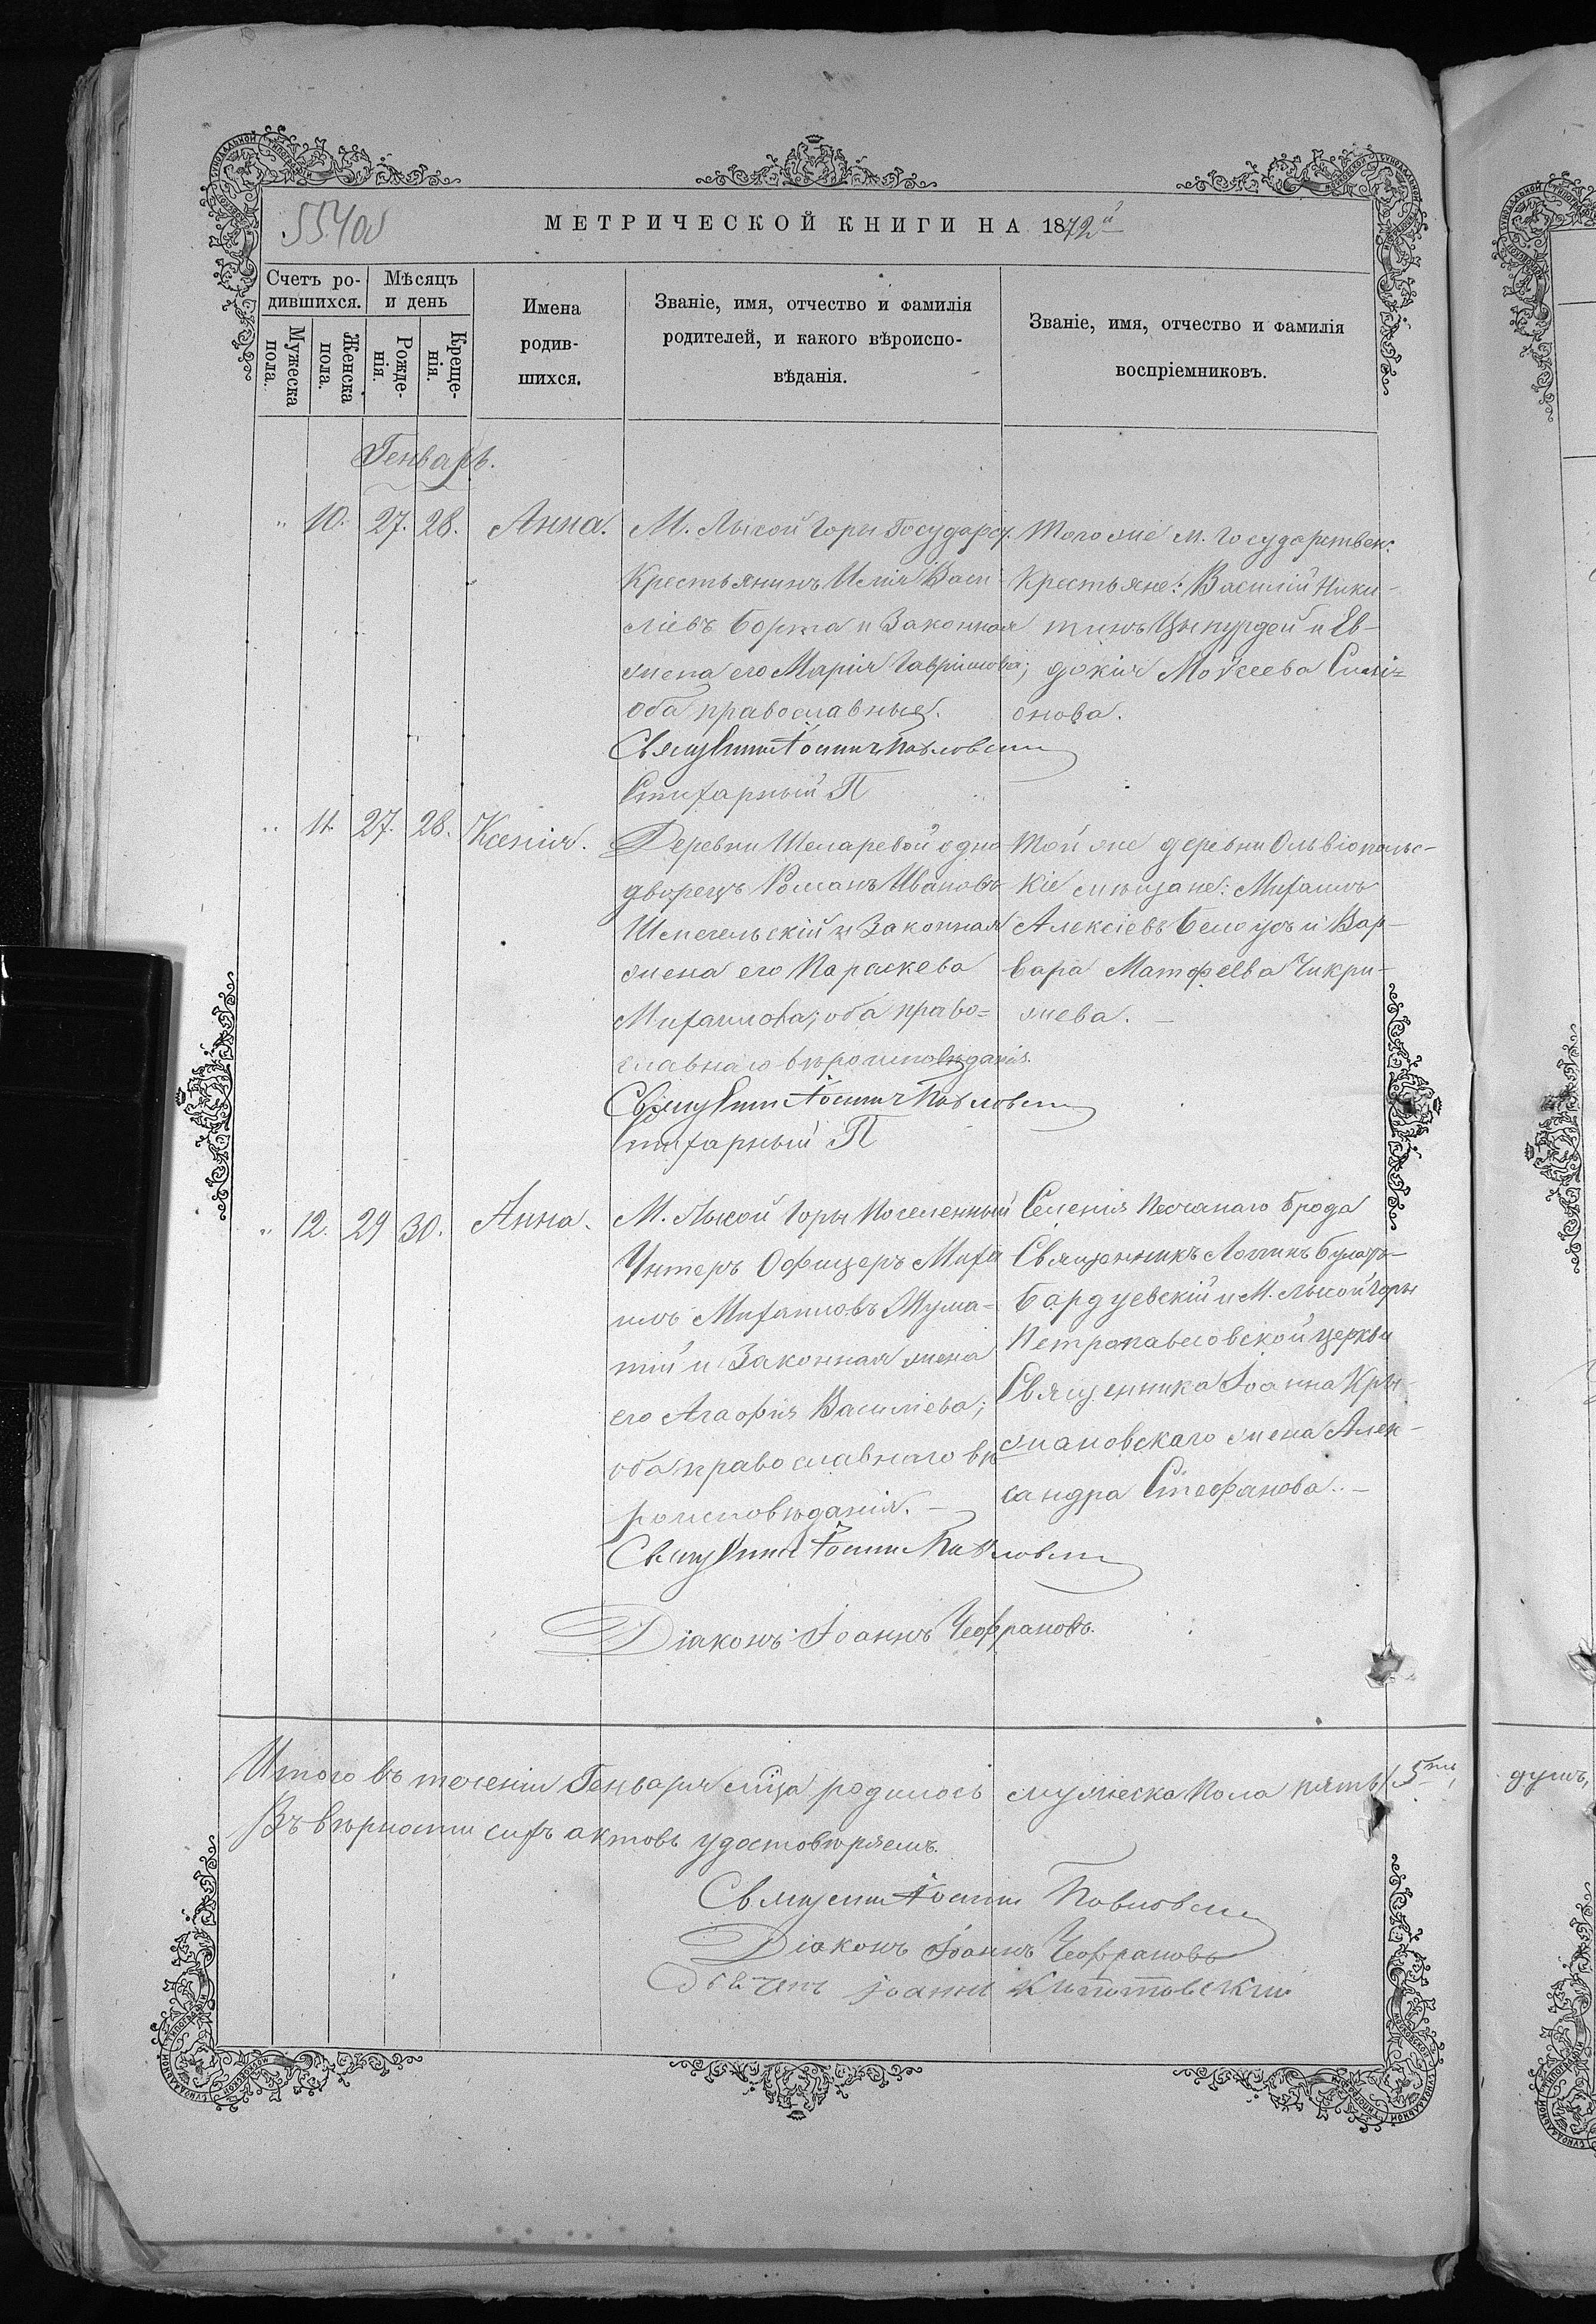 МЕТРИЧЕСКОЙ КНИГИ НА 1872й
Счетъ ро-
дившихся.
Мѣсяцъ
и день
Мужеска
пола.
Женска
пола.
Рожде-
нія.
Креще-
нія.
Имена
родив-
шихся.
Званіе, имя, отчество и фамилія
родителей, и какого вѣроиспо-
вѣданія.
Званіе, имя, отчество и фамилія
воспріемниковъ.
Генварь.
" 10. 27. 28. Анна.
М. Лысой Горы Государст.
Крестьянинъ Илія Васи-
ліевъ Борта и Законная
жена его Марія Гавриилова;
оба православные.
Стихарный П
Того же м. Государствен:
Крестьяне: Василій Ники-
тинъ Цыпурдей и Ев-
докія Моѵсеева Симі-
онова.
" 11. 27. 28. Ксенія.
Деревни Шемаревой одно
дворецъ Романъ Ивановъ
Шпегельскій и Законная
жена его Параскева
Михаилова; оба право=
славнаго вѣроисповѣданія.
Стихарный П
Той же деревни Ольвіопольс-
кіе мѣщане: Михаилъ
Алексіевъ Белоусъ и Вар-
вара Матфеева Чикри-
жева.
" 12. 29 30. Анна.
М. Лысой Горы Поселенный
Унтеръ Офицеръ Миха
илъ Михаиловъ Жума-
тій и Законная жена
его Агафія Василіева;
оба православнаго вѣ
роисповѣданія.
Діаконъ Іоаннъ Чефрановъ.
Селенія Песчанаго Брода
Священникъ Логинъ Булатъ-
Бардуевскій и М. Лысой Горы
Петропавловской церкви
Священника Іоанна Кры-
жановскаго жена Алек-
сандра Стефанова.
Итого въ теченіи Генваря мѣца родилось мужеска пола пять / 5ть,
душъ,
Въ вѣрности сихъ актовъ удостовѣряемъ.
Діаконъ Іоаннъ Чефрановъ
Іоаннъ